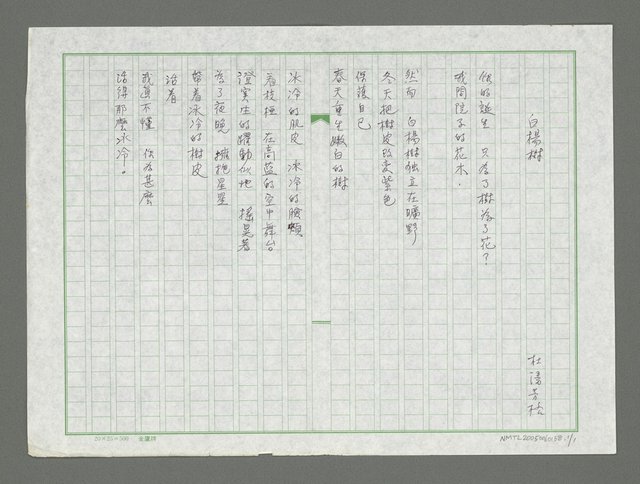 白楊樹
杜潘芳格
你的誕生 只為了樹為了花？
或開院子的花木．
然而 白楊樹独立在曠野
冬天把樹皮改变紫色
保護自己
春天重生嫩白的樹
冰冷的肌皮 凍冷的臉頰
看枝極 在高藍的空中舞台
證實生的躍動似地 搖晃著
為了夜晚 擁抱星星
帶着冰冷的樹皮
活着
我真不懂 你為甚麼
活得那麼冰冷。
20×25=500 金鷹牌
NMTL20050060158 1/1